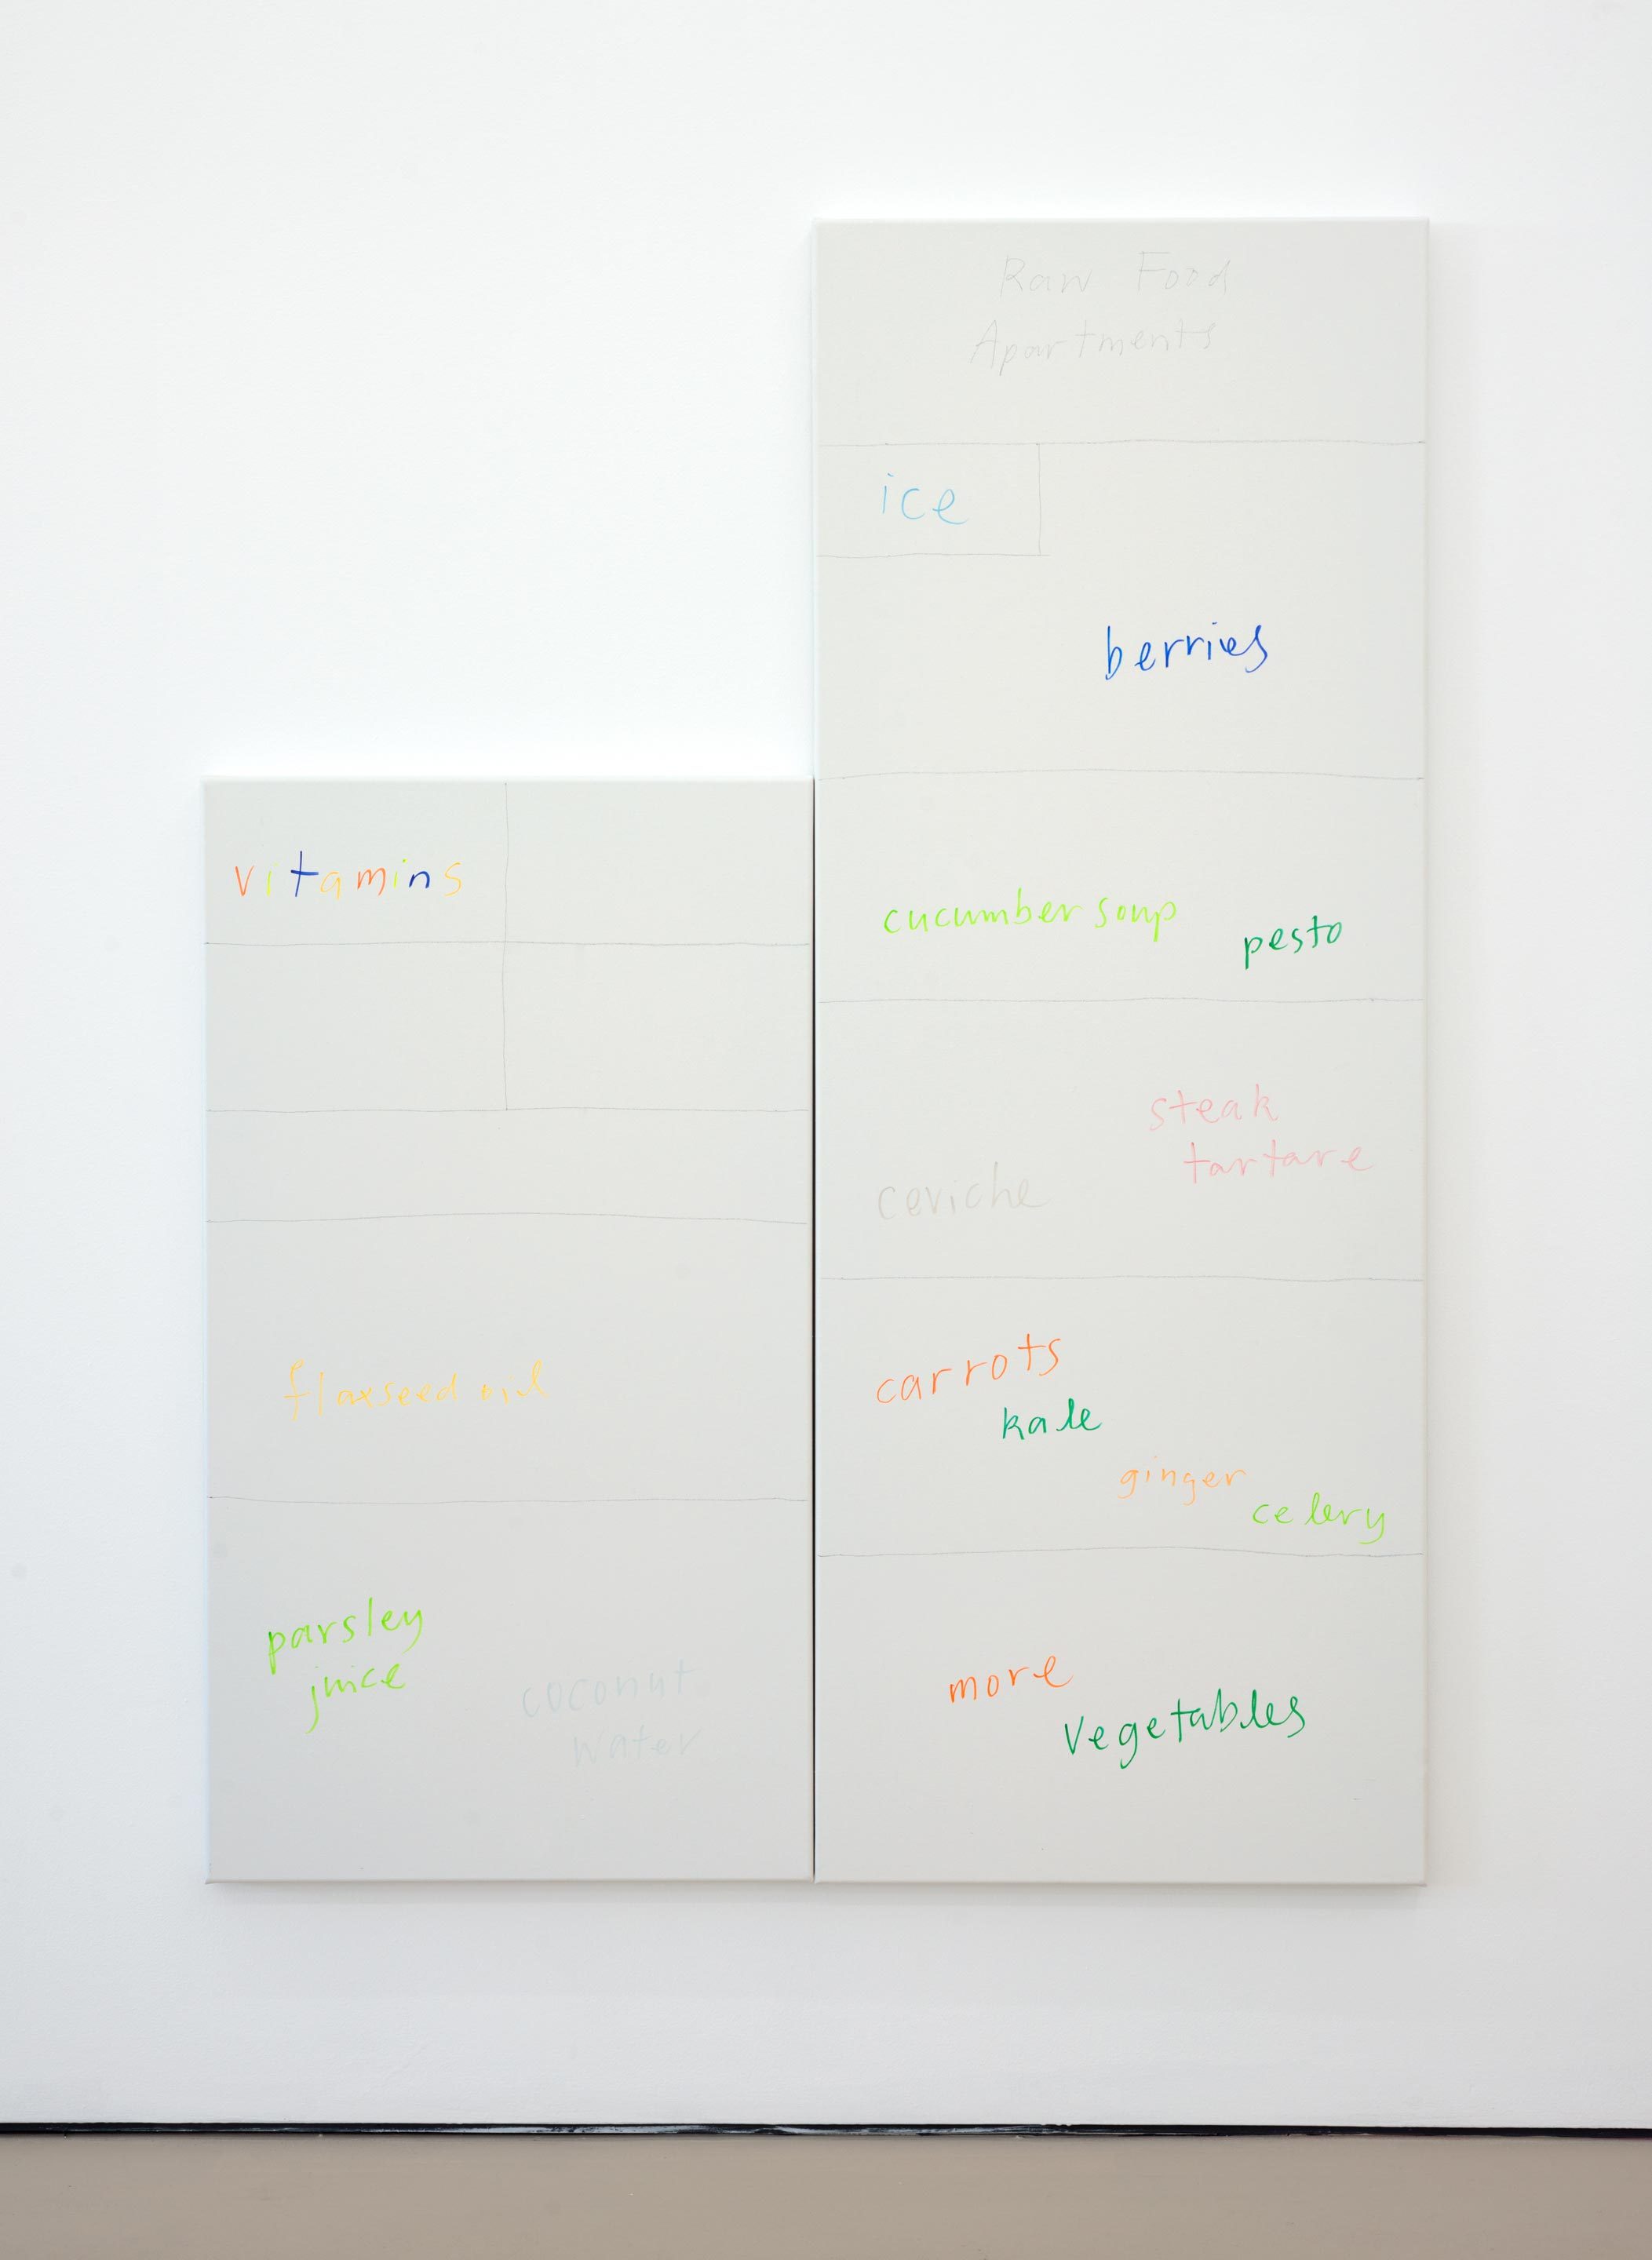 Raw Food
Apartments
ice
berries
cucumber soup
pesto
steak
tartare
ceviche
carrots
kale
ginger
celery
more
vegetables
vitamins
flaxseed oil
parsley
juice
coconut
water